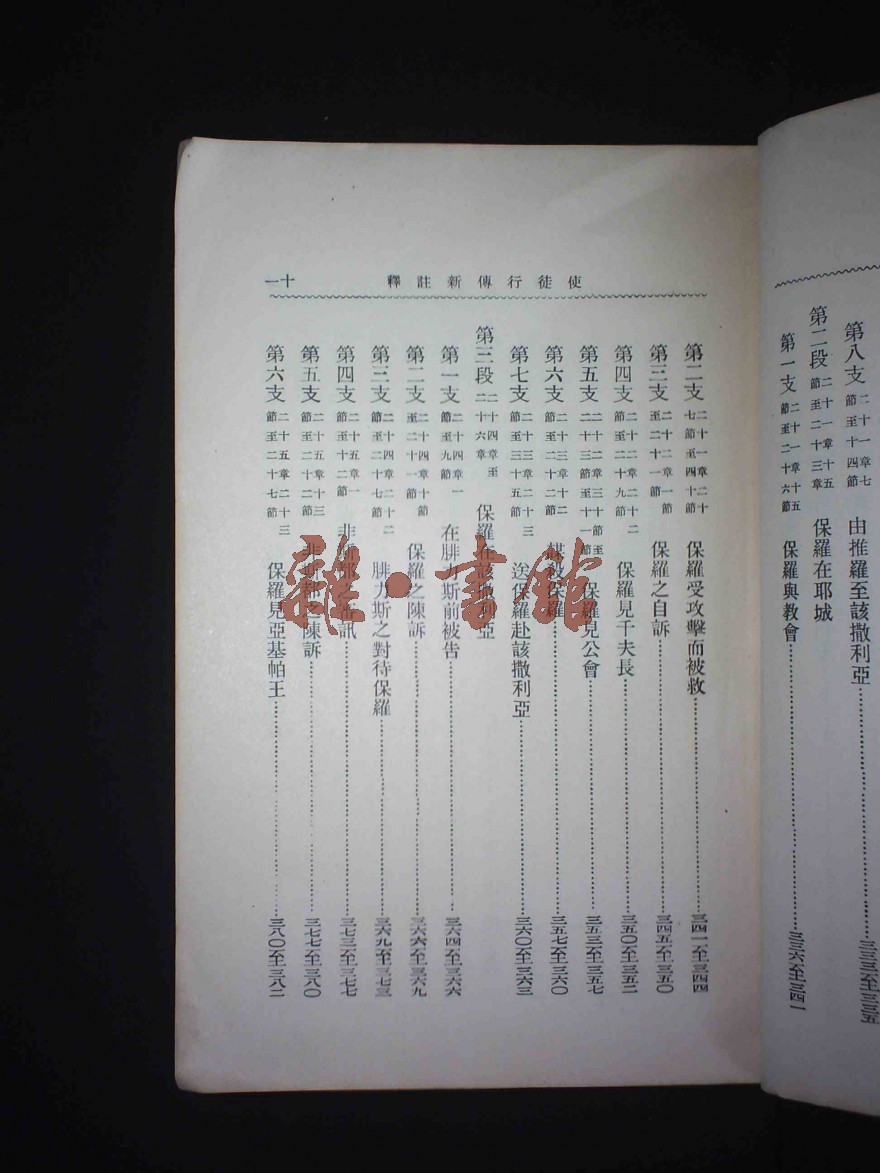 第八支 二十一章七節至十四節 由推羅至該撒利亞……三三三至三三五
第二段 二十一章十五節至二十三章 保羅在耶城
第一支 二十一章十五節至二十六節 保羅與教會……三三六至三四一
使徒行傳新註釋 十一
第二支 二十一章二十七節至四十節 保羅受攻擊而被救……三四一至三四四
第三支 二十二章一節至二十一節 保羅之自訴……三四五至三五〇
第四支 二十二章二十二節至二十九節 保羅見千夫長……三五〇至三五二
第五支 二十二章三十節至二十三章十一節 保羅見公會……三五三至三五七
第六支 二十三章十二節至二十二節 謀殺保羅……三五七至三六〇
第七支 二十三章二十三節至三十五節 送保羅赴該撒利亞……三六〇至三六三
第三段 二十四章至二十六章 保羅在該撒利亞
第一支 二十四章一節至九節 在腓力斯前被告……三六四至三六六
第二支 二十四章十節至二十一節 保羅之陳訴……三六六至三六九
第三支 二十四章二十二節至二十七節 腓力斯之對待保羅……三六九至三七三
第四支 二十五章一節至十二節 非斯都之審訊……三七三至三七七
第五支 二十五章十三節至二十二節 非斯都之陳訴……三七七至三八〇
第六支 二十五章二十三節至二十七節 保羅見亞基帕王……三八〇至三八二
雜·書館